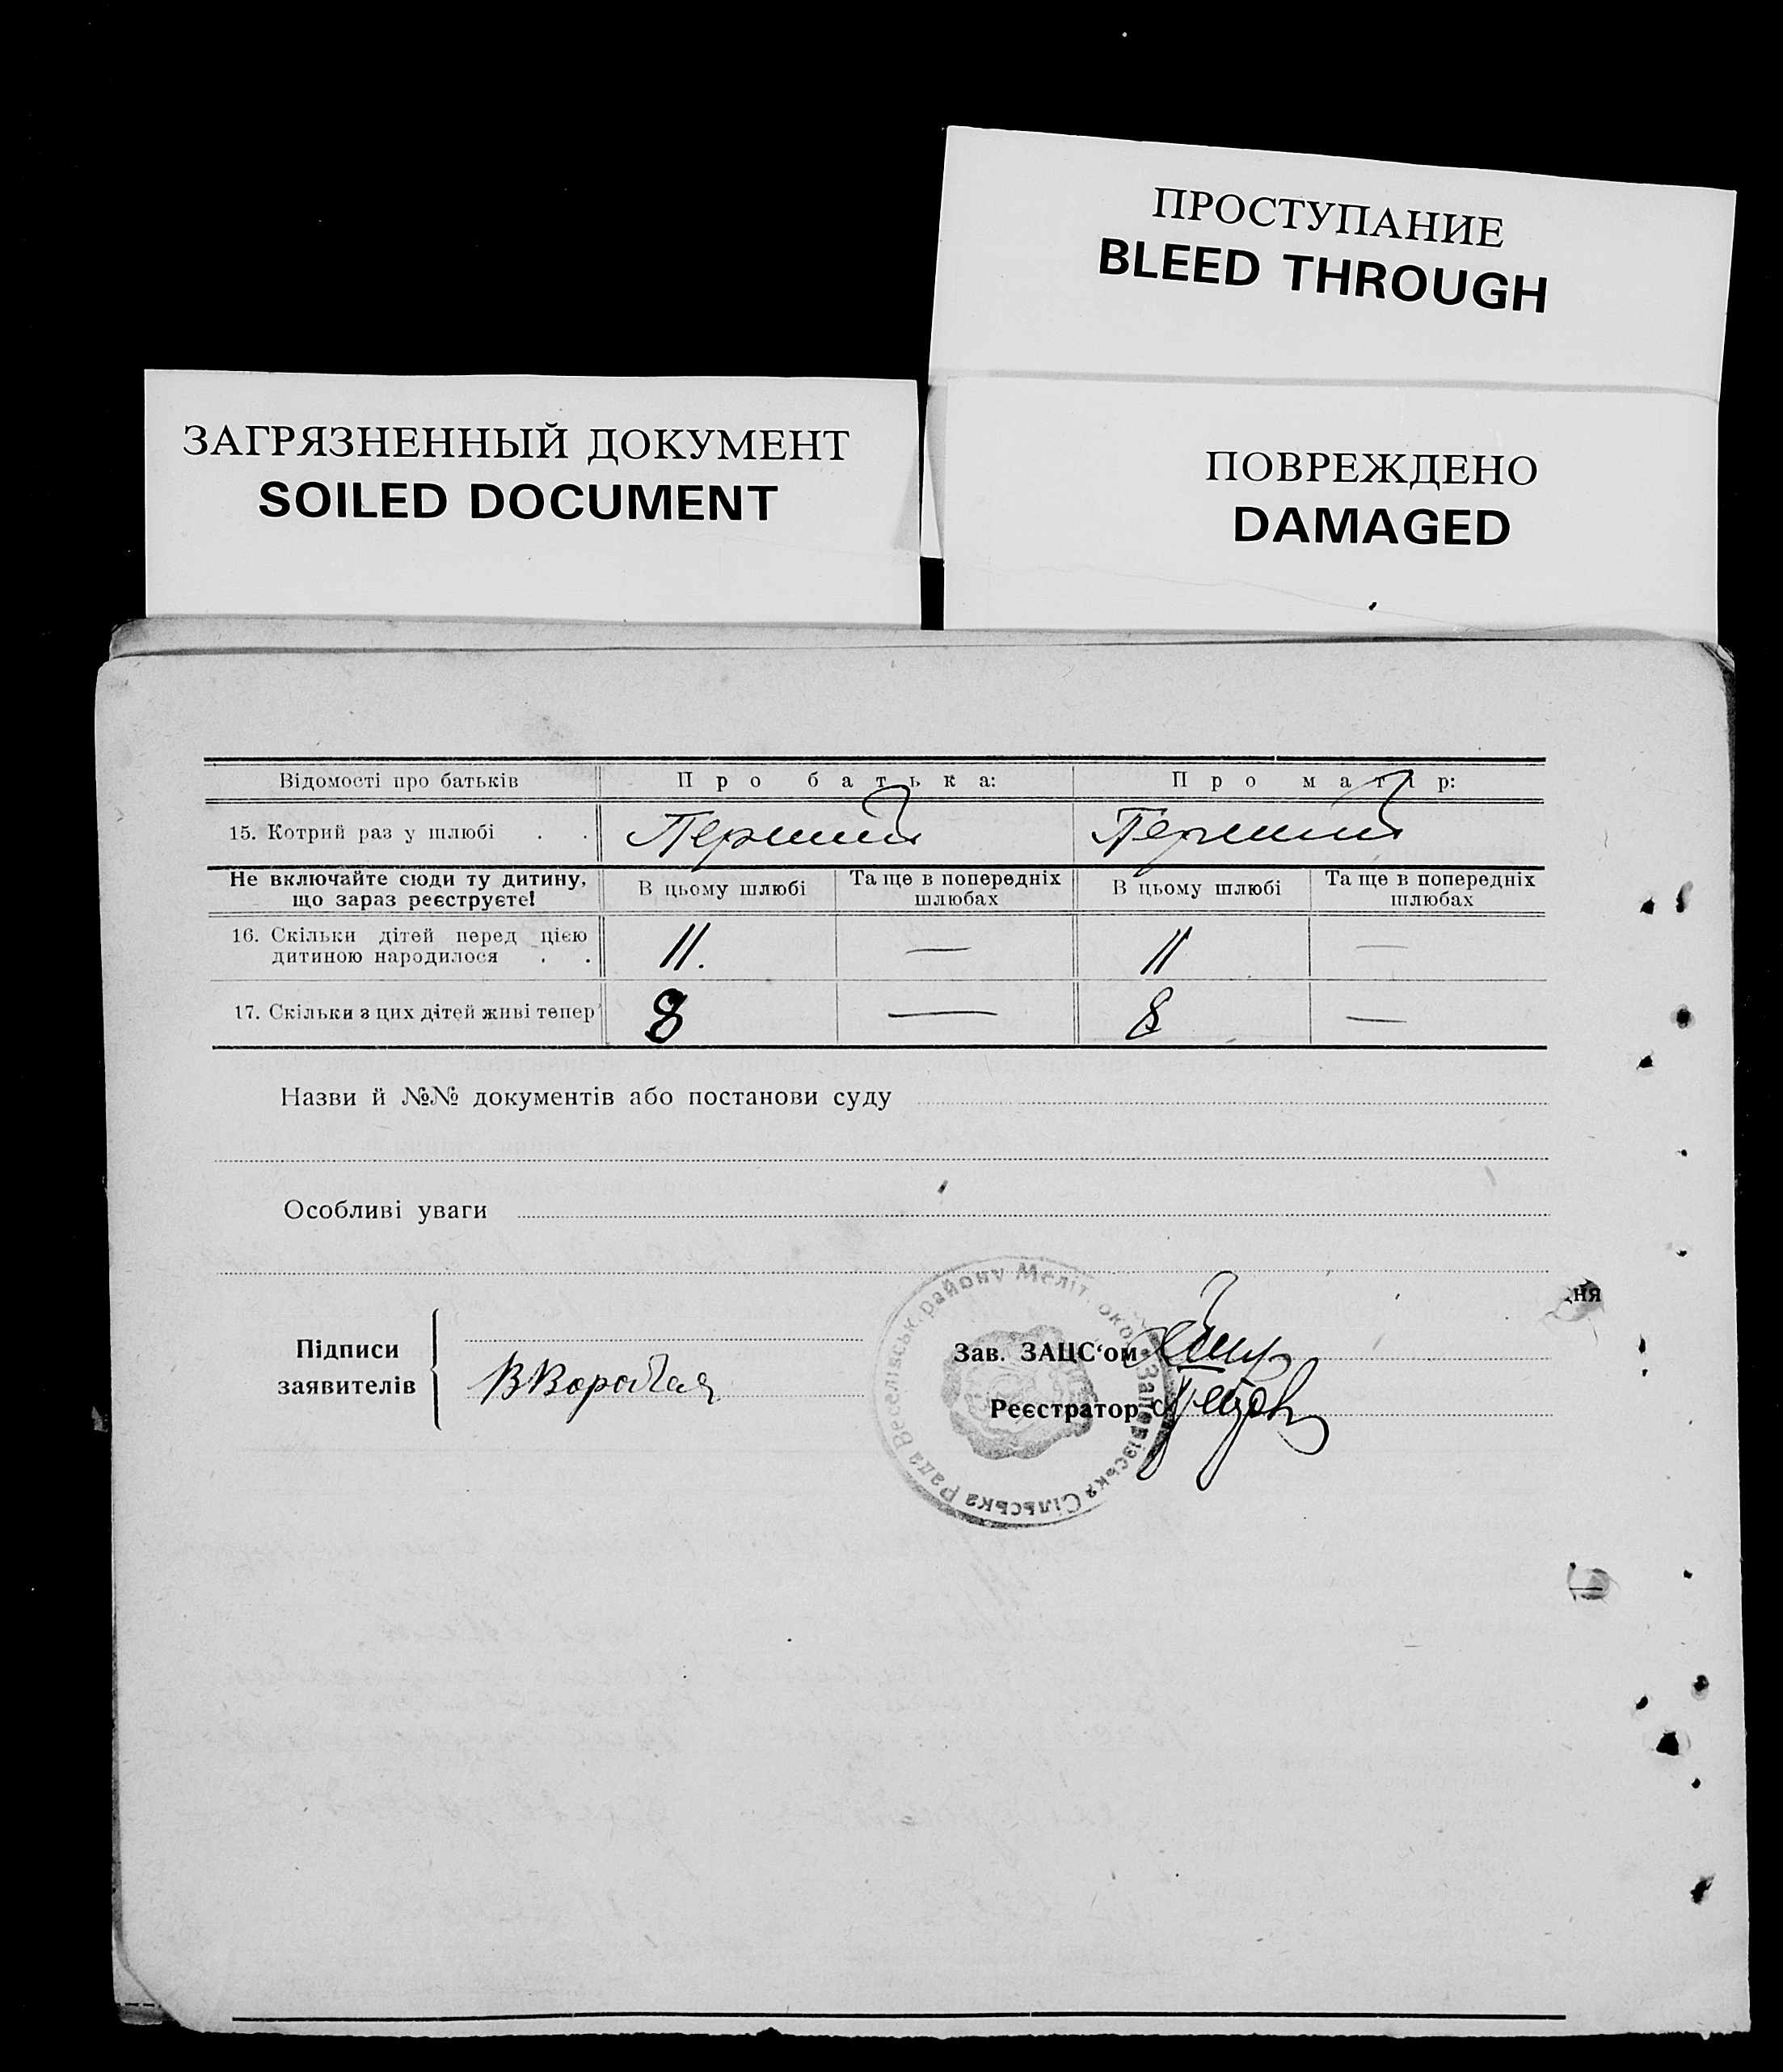 ПРОСТУПАНИЕ
BLEED THROUGH
ЗАГРЯЗНЕННЫЙ ДОКУМЕНТ
SOILED DOCUMENT
ПОВРЕЖДЕНО
DAMAGED
Відомості про батьків Про батька: Про матір:
15. Котрий раз у шлюбі . . Перший Перший
Не включайте сюди ту дитину, що зараз реєструєте! В цьому шлюбі Та ще в попередніх шлюбах В цьому шлюбі Та ще в попередніх шлюбах
16. Скільки дітей перед цією
дитиною народилося . . 11. — 11 —
17. Скільки з цих дітей живі тепер 8 — 8 —
Назви й №№ документів або постанови суду
Особливі уваги
дня
Підписи
заявителів
Зав. ЗАЦС‘ом
Реєстратор
Сільська Рада Веселівськ. району Меліт. окр.